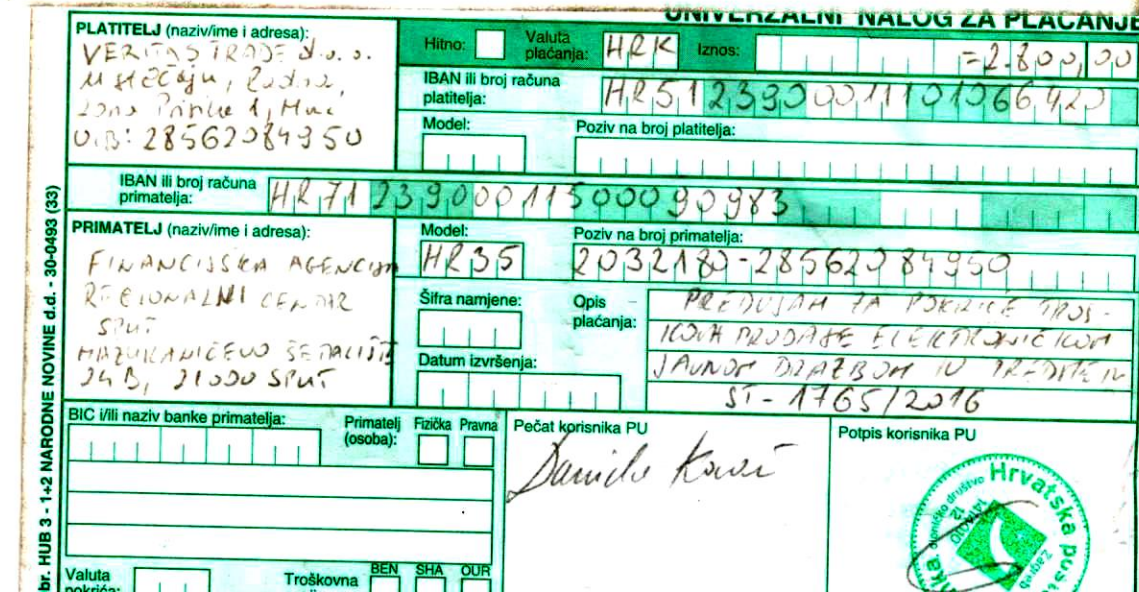 UNIVERZALNI NALOG ZA PLAĆANJE
PLATITELJ (naziv/ime i adresa):
VERITAS TRADE d.o.o.
u stečaju,
OIB: 28562084950
Hitno:
Valuta plaćanja: HRK
Iznos: =2.800,00
IBAN ili broj računa
platitelja: HR5123900011101066420
Model:
Poziv na broj platitelja:
IBAN ili broj računa
primatelja: HR7123900011500090983
PRIMATELJ (naziv/ime i adresa):
FINANCIJSKA AGENCIJA
REGIONALNI CENTAR
SPLIT
MAŽURANIĆEVO ŠETALIŠTE
24B, 21000 SPLIT
Model:
HR35
Poziv na broj primatelja:
2032180-28562084950
Šifra namjene:
Datum izvršenja:
Opis
plaćanja:
PREDUJAM ZA POKRIĆE TROŠ-
KOVA PRODAJE ELEKTRONIČKOM
JAVNOM DRAŽBOM U PREDMETU
ST-1765/2016
BIC i/ili naziv banke primatelja:
Primatelj
(osoba):
Fizička Pravna
Pečat korisnika PU
Potpis korisnika PU
Hrvatska
dioničko društvo
Zagreb
12
Valuta
pokrića:
Troškovna
BEN SHA OUR
br. HUB 3 - 1+2 NARODNE NOVINE d.d. - 30-0493 (33)